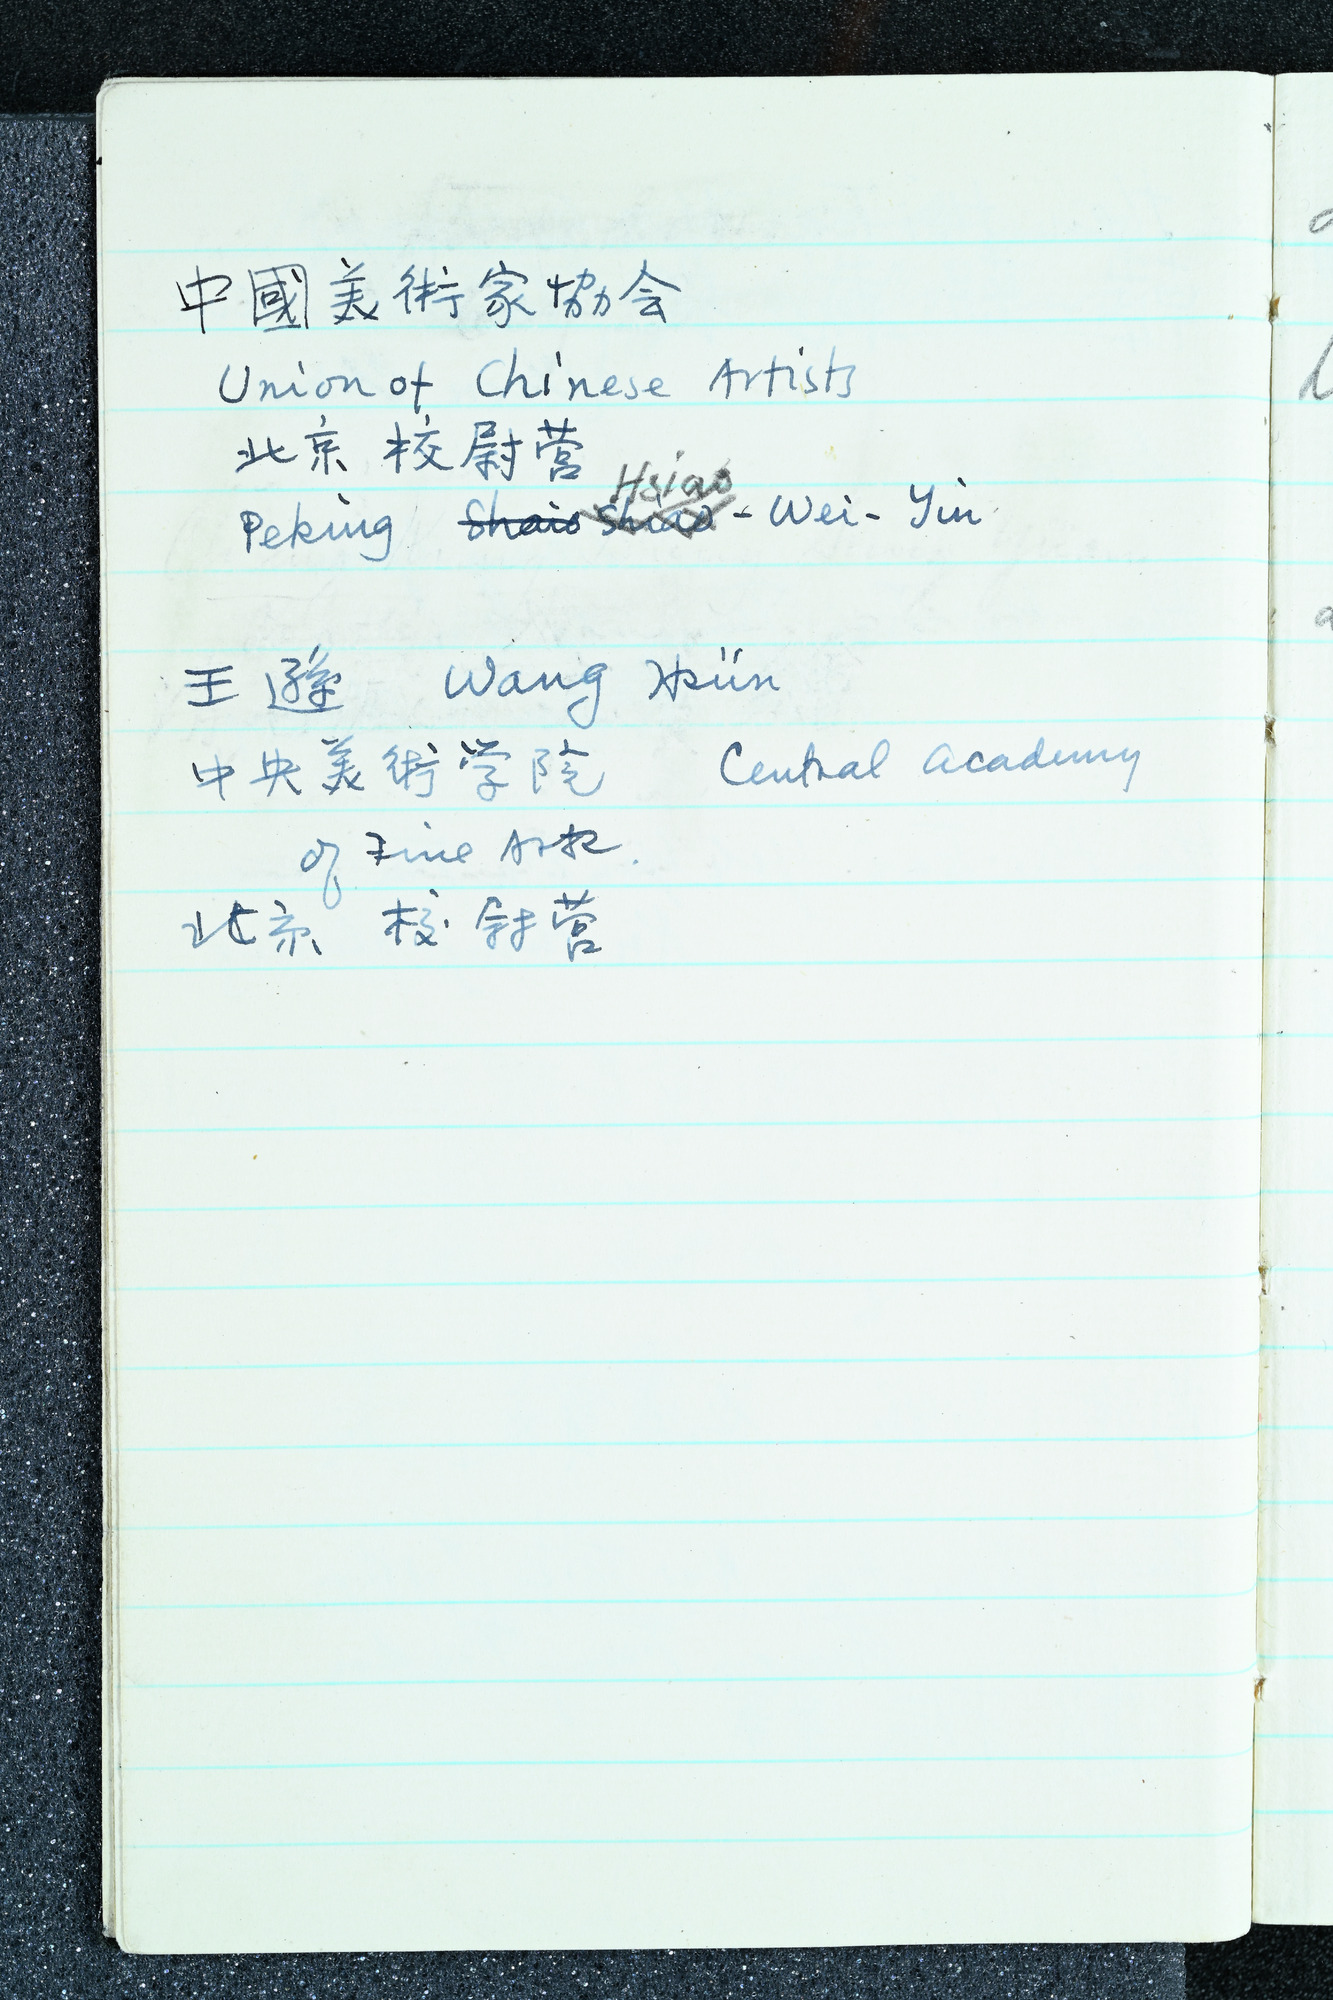 中國美術家協会
Union of Chinese Artists
北京 校尉营
Hsiao
Peking Shaio Shiao - Wei - Yin
王遜 Wang Hsün
中央美術学院 Central Academy
of Fine Arts.
北京 校尉营